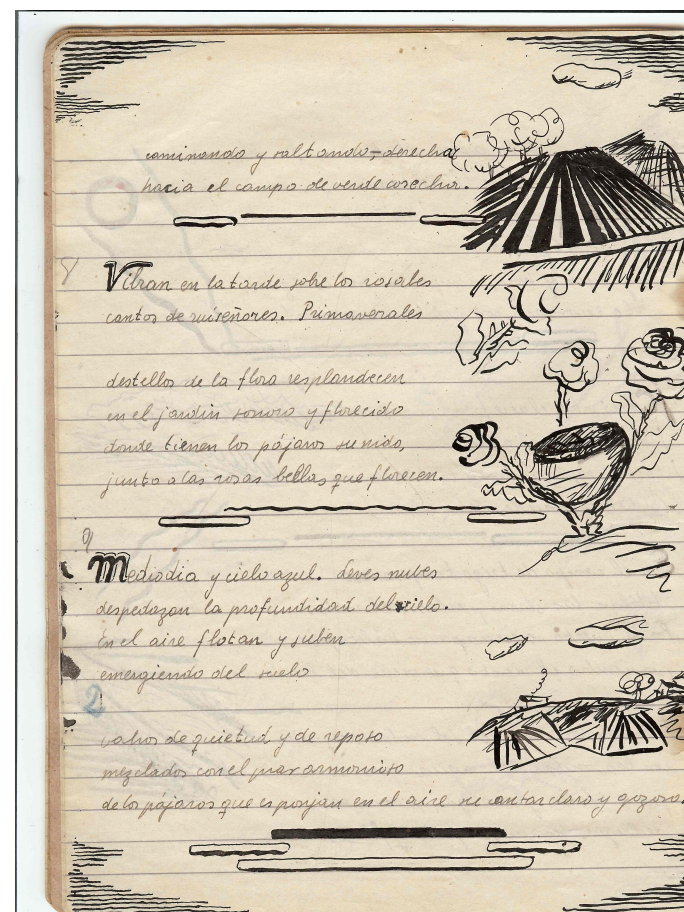 caminando y saltando, derecha
hacia el campo de verde cosecha.
8
Vibran en la tarde sobre los rosales
cantos de ruiseñores. Primaverales
destellos de la flora resplandecen
en el jardín sonoro y florecido
donde tienen los pájaros su nido,
junto a las rosas bellas que florecen.
9
Mediodia y cielo azul. Leves nubes
despedazan la profundidad del cielo.
En el aire flotan y suben
emergiendo del suelo
2
vahos de quietud y de reposo
mezclados con el piar armonioso
de los pájaros que esponjan en el aire su cantar claro y gozoso.